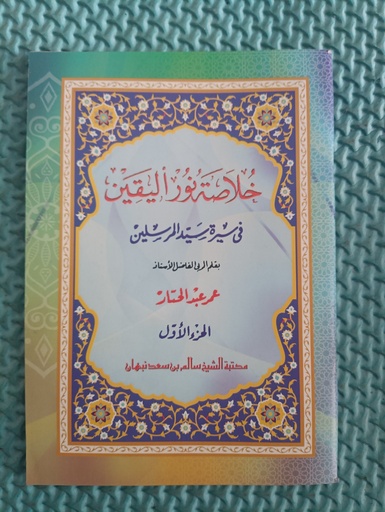 خلاصة نور اليقين
في سيرة سيد المرسلين
بقلم المربي الفاضل الأستاذ
عمر عبد الجبار
الجزء الأول
مكتبة الشيخ سالم بن سعد نبهان